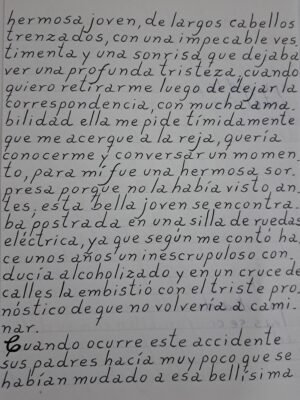 hermosa joven, de largos cabellos
trenzados, con una impecable ves
timenta y una sonrisa que dejaba
ver una profunda tristeza, cuando
quiero retirarme luego de dejar la
correspondencia, con mucha ama
bilidad ella me pide tímidamente
que me acerque a la reja, quería
conocerme y conversar un momen
to, para mi fue una hermosa sor
presa porque no la había visto an
tes, esta bella joven se encontra
ba postrada en una silla de ruedas
eléctrica, ya que según me contó ha
ce unos años un inescrupuloso con
ducía alcoholizado y en un cruce de
calles la embistió con el triste pro
nóstico de que no volvería a cami
nar.
Cuando ocurre este accidente
sus padres hacía muy poco que se
habían mudado a esa bellísima